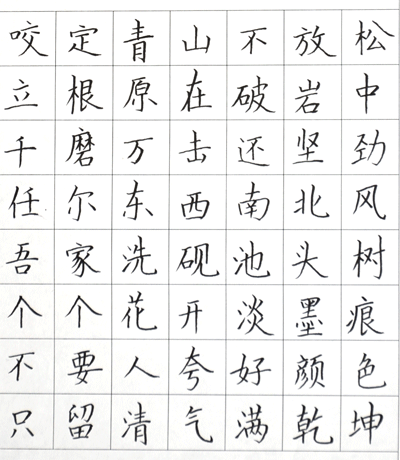 咬定青山不放松
立根原在破岩中
千磨万击还坚劲
任尔东西南北风
吾家洗砚池头树
个个花开淡墨痕
不要人夸好颜色
只留清气满乾坤